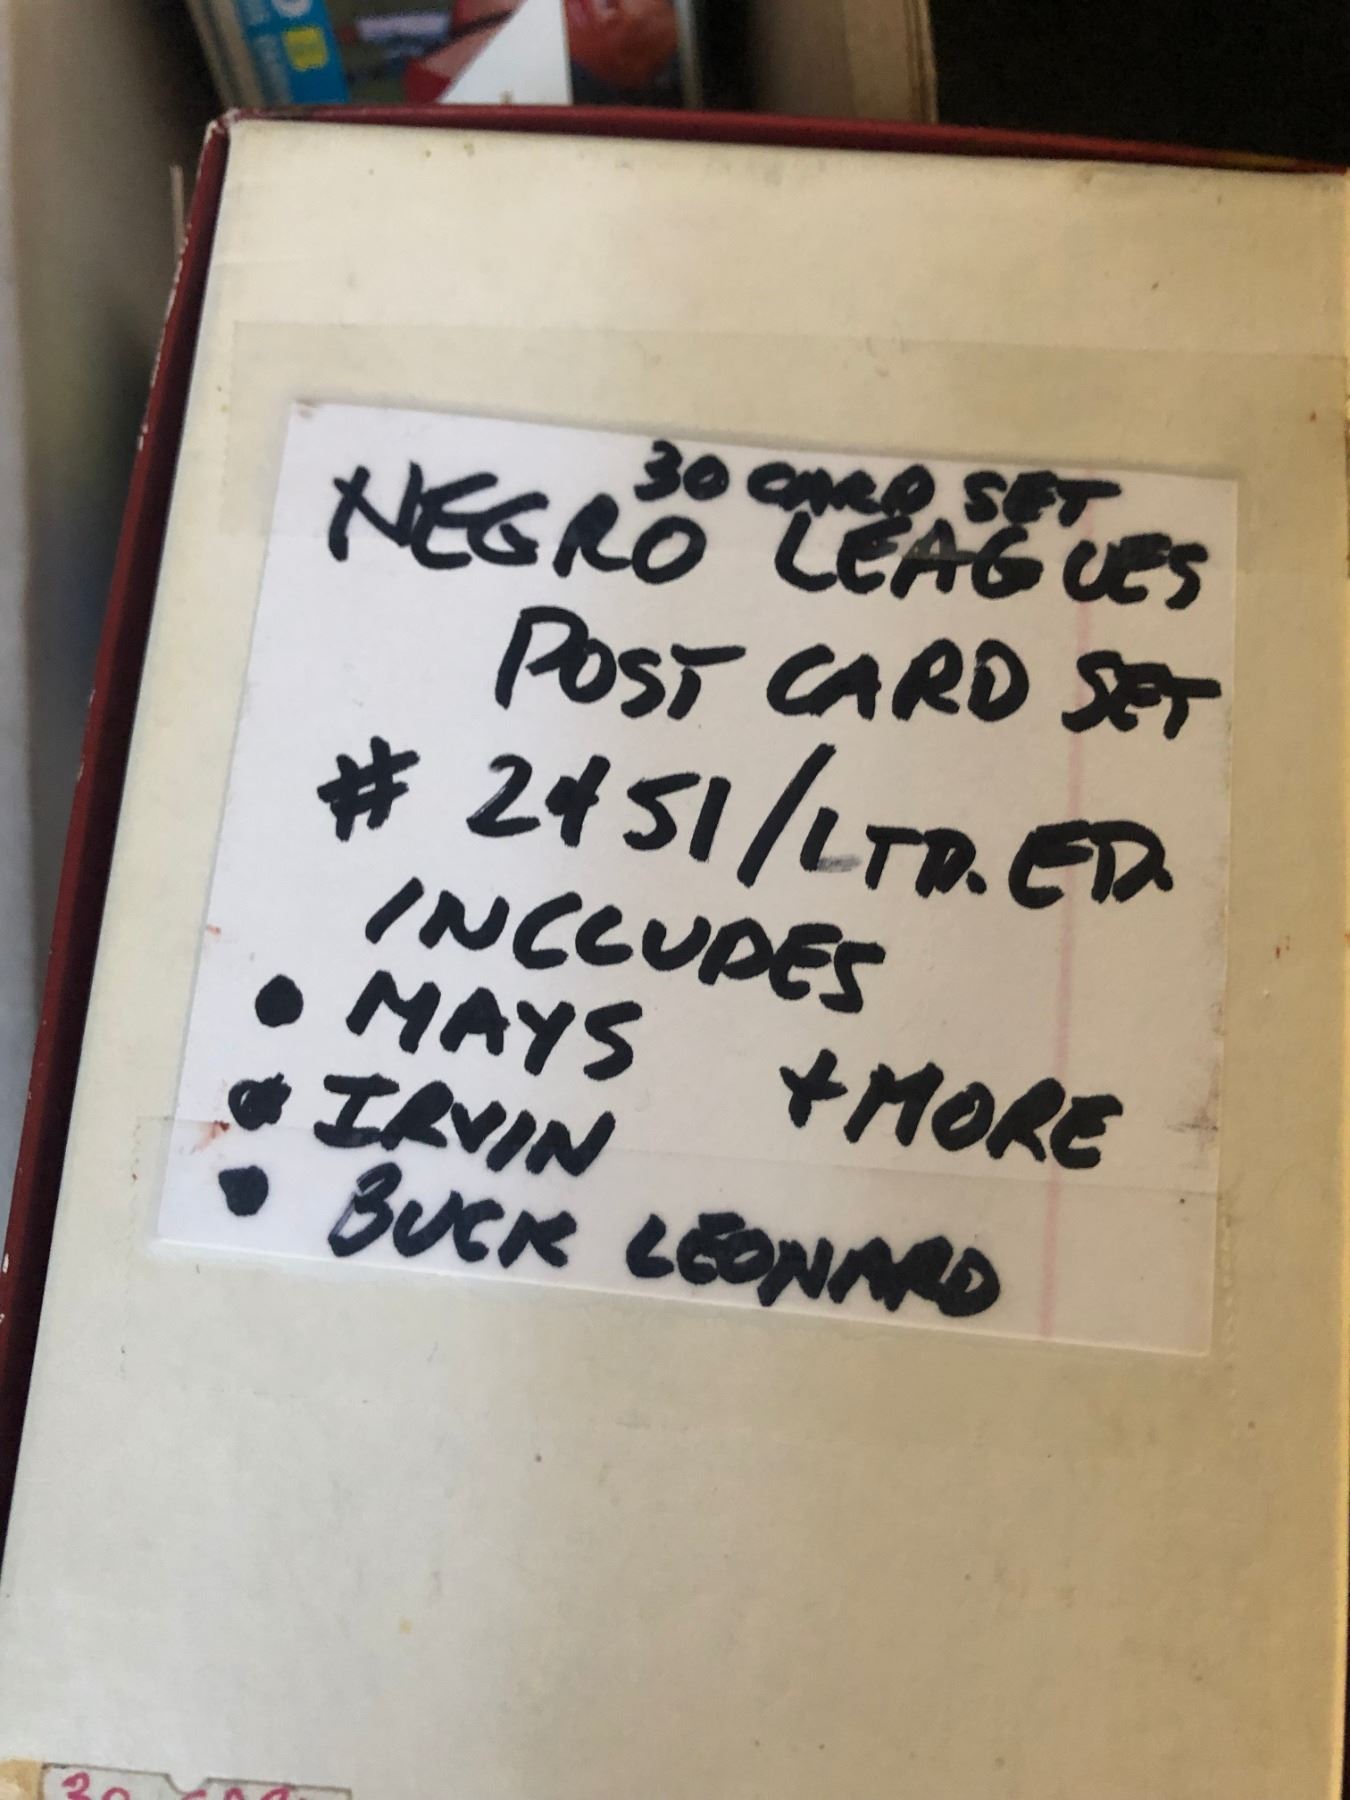 30 CARD SET
NEGRO LEAGUES
POST CARD SET
# 2451/LTD. ED.
INCLUDES
• MAYS +MORE
• IRVIN
• BUCK LEONARD
30